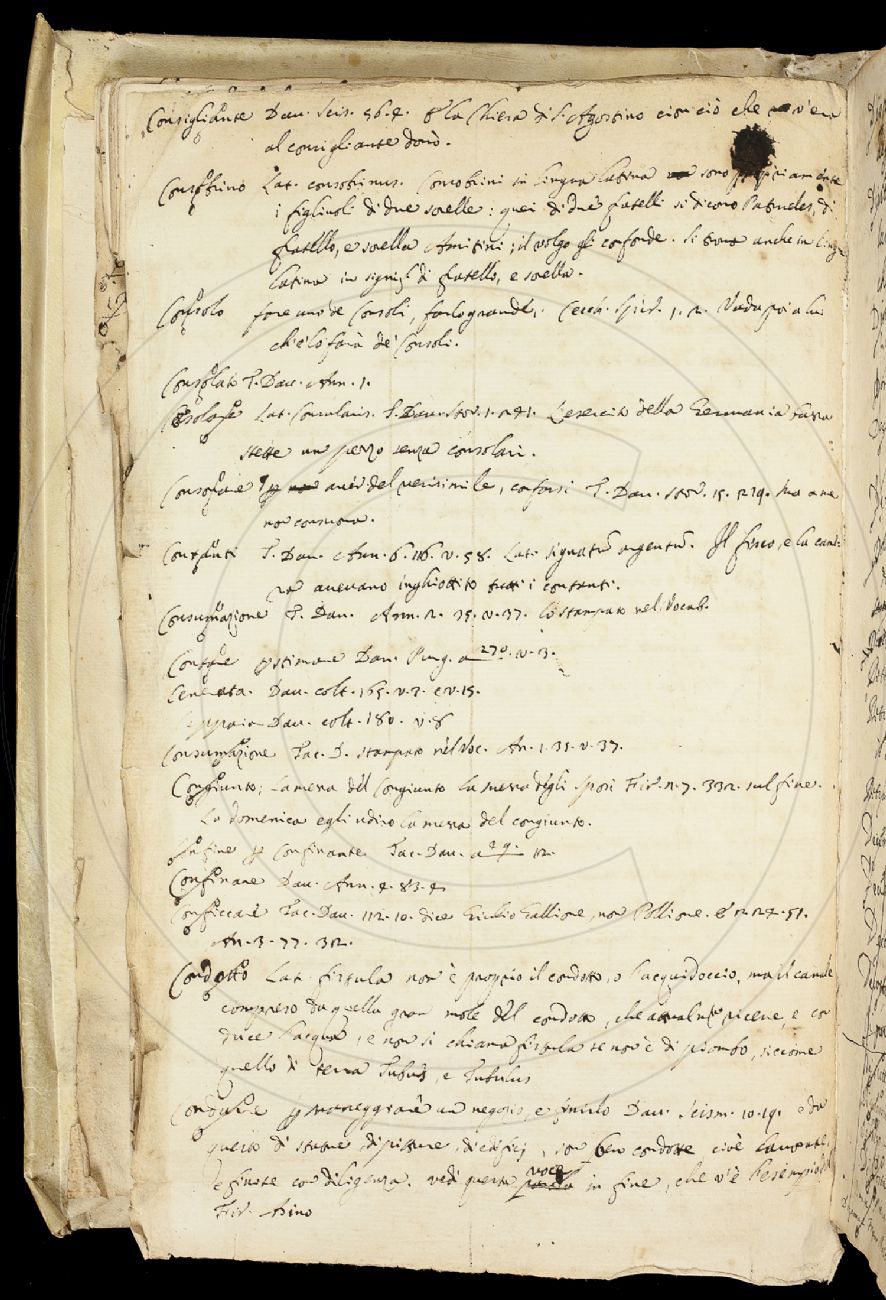 Consigliante Dav. Scis. 56.4. E la Chiesa di S. Agostino cioriciò che v'era
al consigliante donò.
Consobrino Lat. consobrinus. Consobrini in lingua latina sono propriamente
i figliuoli di due sorelle: quei di due fratelli si dicono Patrueles, di
fratello, e sorella Amitini; il volgo gli confonde. Si trova anche in ling.
latina in signif. di fratello, e sorella.
Consolo fare uno de Consoli, farlo grande. Cecch. Spir. 1. 2. Vada poi a lui
ch'e lo farà de' Consoli.
Consolato T. Dav. Ann. 1.
Lat. Consularis. T. Dav. Stor. 1. 241. L'esercito della Germania bassa
stette un pezzo senza consolari.
Consonare aver del verisimile, confarsi T. Dav. Stor. 15. 219. Ma a me
non consuona.
Contanti T. Dav. Ann. 6. 116. v. 58. Lat. signatũ argentũ. Il fisco, e la came
ra avevano inghiottito tutti i contanti.
Consumazione T. Dav. Ann. 2. 35. v. 37. lo stampato nel Vocab.
estimare Dav. Purg. a 270. v. 13.
Dav. colt. 165. v. 2. e v. 15.
Dav. colt. 180. v. 8
Consumazione Tac. D. stampato nel Voc. An. 1. 35. v. 37.
Congiunto; La messa del Congiunto la messa degli sposi Fir. n. 7. 332. sul fine.
La domenica egli udirò la messa del congiunto.
Confine p Confinante Tac. Dav. a 29. 12.
Confinare Dav. Ann. 4. 83. 4
Conficcare Tac. Dav. 112. 10. dice Giulio Gallione, non Pollione. E 224. 51.
An. 3. 77. 32.
Condotto Lat. fistula non è proprio il condotto, o l'acquidoccio, ma il canale
compreso da quella gran mole del condotto, che riceve, e con
duce l'acqua, e non si chiama fistula se non è di piombo, siccome
quello di terra Tubus, e Tubulus
Condurre p maneggiare un negozio, e finirlo Dav. Scism. 10. 19. e da
questo di statue di pitture, di edifizj, son ben condotte, cioè lavorate,
e finite con diligenza. vedi questa voce in fine, che v'è l'esempio del
Fir. Asino